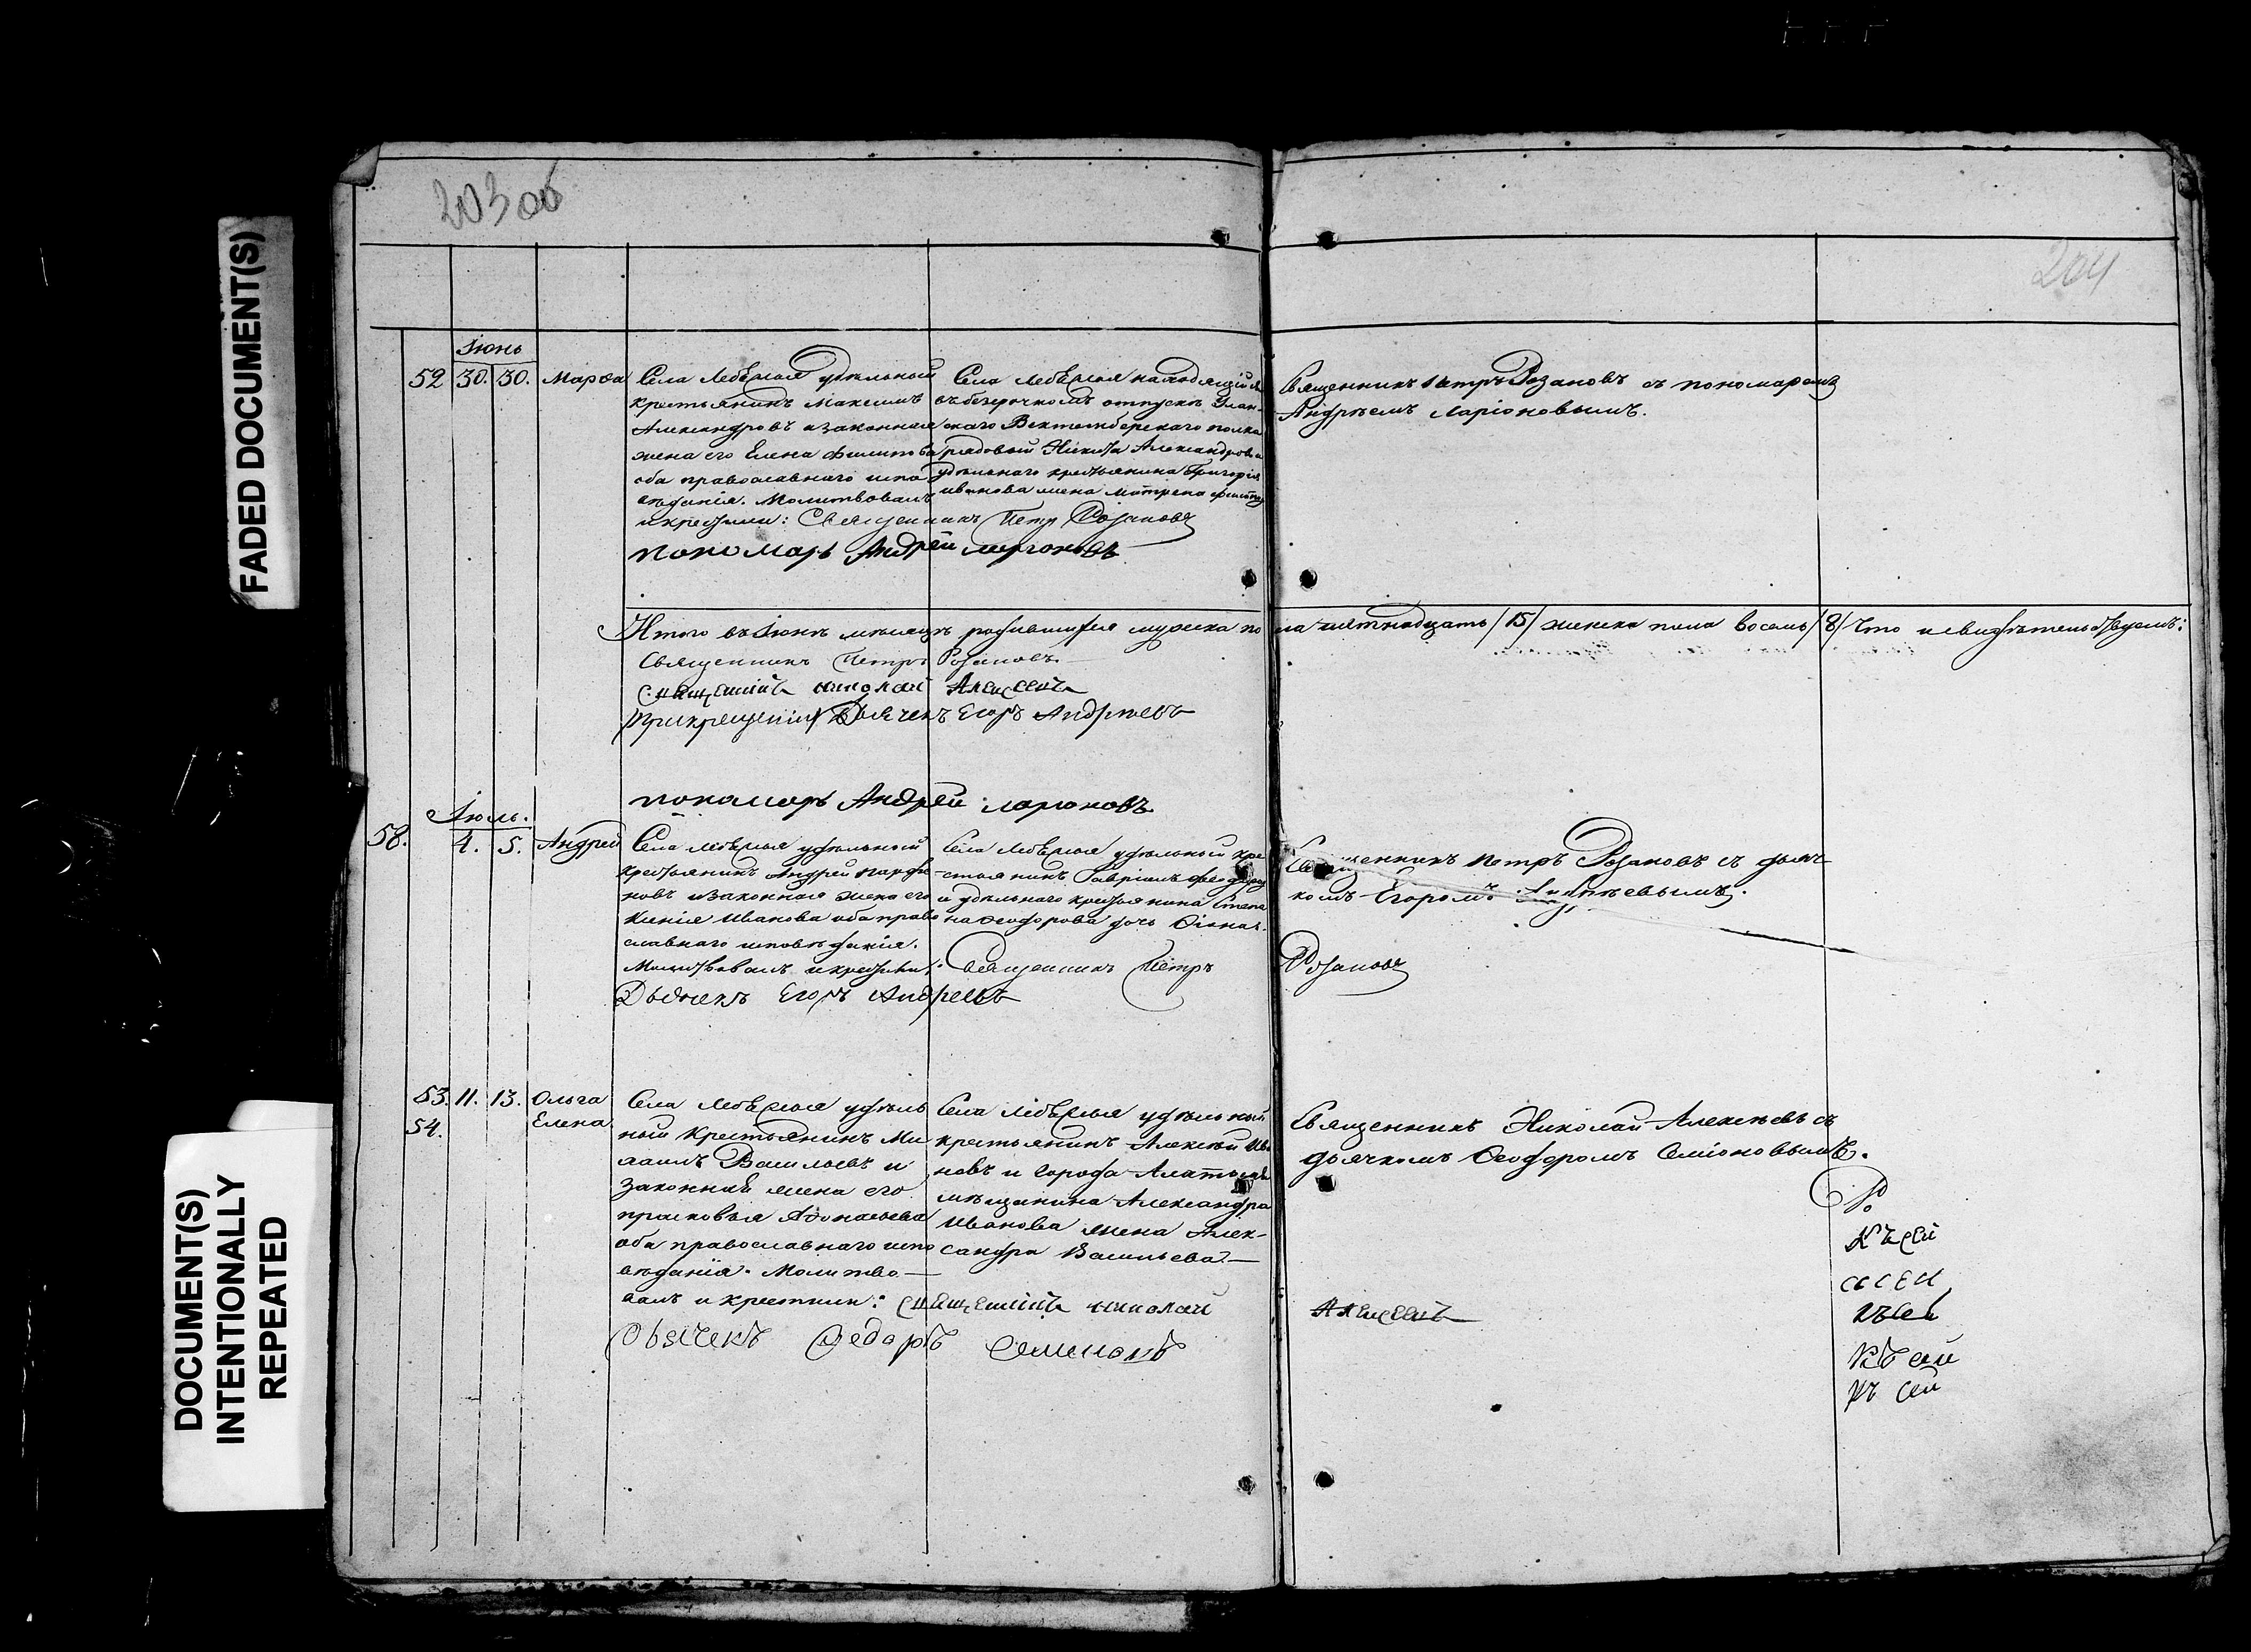 FADED DOCUMENT(S)
DOCUMENT(S)
INTENTIONALLY
REPEATED
203 об
204
Іюнь
52 30. 30. Марѳа
Села удѣльный
крестьянинъ Максимъ
Александровъ и законная
жена его Елена Филипова
оба православнаго испо
вѣданія. Молитвовалъ
и крестили: Священникъ Петръ Розановъ
пономарь Андрей Ларіоновъ
Села находящійся
въ безсрочномъ отпускѣ Улан-
скаго полка
рядовый Никита Александровъ и
удѣльнаго крестьянина Григорія
Иванова жена Матрена
Священникъ Петръ Розановъ съ пономаремъ
Андреемъ Ларіоновымъ.
Итого въ Іюнѣ мѣсяцѣ родившихся мужеска по
ла пятнадцать /15/ женска пола восемь /8/ Что и свидѣтельствуемъ:
Священникъ Петръ Розановъ
Священникъ Николай Алексеевъ
Дьячекъ Егоръ Андреевъ
пономарь Андрей Ларіоновъ
Іюль.
58. 4. 5. Андрей
Села удѣльный
крестьянинъ Андрей Парфе
новъ и законная жена его
Ксенія Иванова оба право
славнаго исповѣданія.
Молитвовалъ и крестили: Священникъ Петръ
Розановъ
Дьячекъ Егоръ Андреевъ
Села удѣльный кре
стьянинъ Гавріилъ
и удѣльнаго крестьянина Степа
на Ѳеодорова дочь
Священникъ Петръ Розановъ съ дьяч
комъ Егоромъ Андреевымъ.
53. 11. 13. Ольга
54. Елена
Села удѣль
ный крестьянинъ Ми
хаилъ Васильевъ и
законная жена его
Прасковья Аѳонасьева
оба православнаго испо
вѣданія. Молитво
валъ и крестили: Священникъ Николай
Алексеевъ
Дьячекъ Ѳедоръ Семеновъ
Села удѣльный
крестьянинъ Алексѣй Ива
новъ и города Алатыря
мѣщанина Александра
Иванова жена Алек-
сандра Васильева
Священникъ Николай Алексѣевъ съ
дьячкомъ Ѳеодоромъ Семіоновымъ.